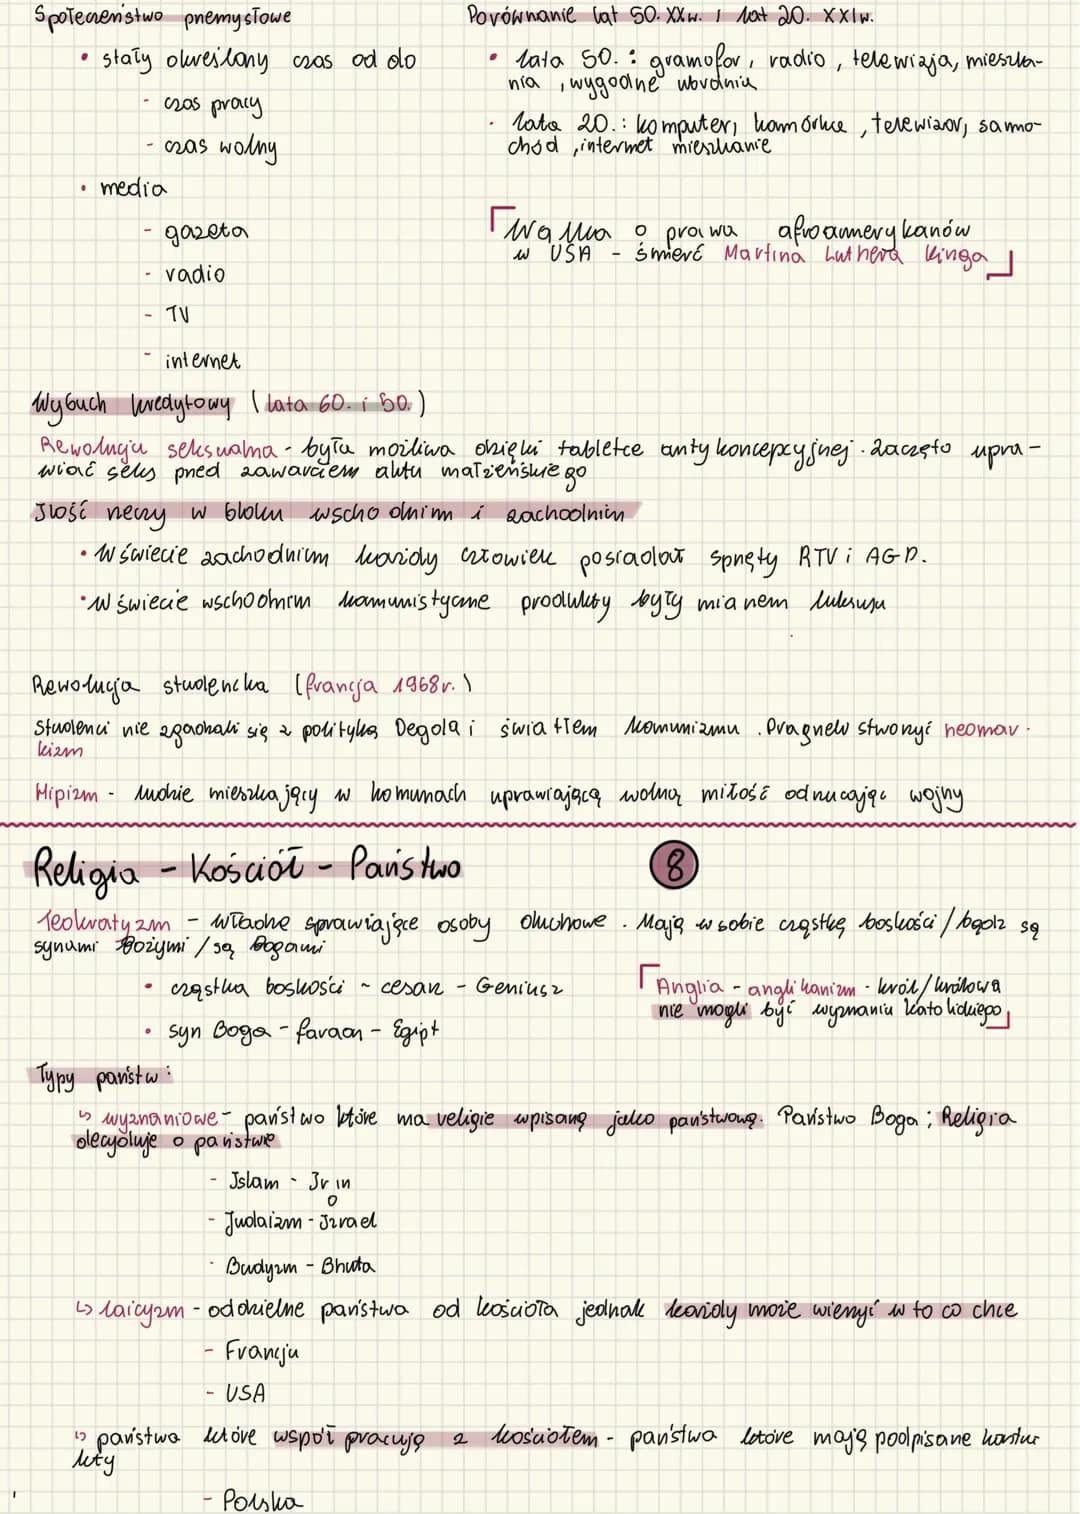 Społeczeństwo przemysłowe
• stały określony czas od do
- czas pracy
- czas wolny
• media
- gazeta
- radio
- TV
- internet
Porównanie lat 50. XXw. i lat 20. XXIw.
• lata 50. : gramofor, radio, telewizja, mieszka-
nia, wygodne ubrania
• lata 20.: komputer, komórka, telewizor, samo-
chód, internet mieszkanie
Walka o prawa afroamerykanów
w USA - śmierć Martina Luthera Kinga
Wybuch kredytowy (lata 60. i 50.)
Rewolucja seksualna - była możliwa dzięki tabletce antykoncepcyjnej. Zaczęto upra-
wiać seks przed zawarciem aktu małżeńskiego
Ilość rzeczy w bloku wschodnim i zachodnim
• W świecie zachodnim każdy człowiek posiadał sprzęty RTV i AGD.
• W świecie wschodnim komunistyczne produkty były mianem luksusu
Rewolucja studencka (francja 1968r.)
Studenci nie zgadzali się z polityką Degola i światłem komunizmu. Pragneli stworzyć neomar-
kizm
Hipizm - ludzie mieszkający w komunach uprawiającą wolną miłość odrzucając wojny
Religia - Kościół - Państwo
8
Teokratyzm - władzę sprawiające osoby duchowe. Mają w sobie cząstkę boskości / bądź są
synami Bożymi / są Bogami
• cząstka boskości ~ cesarz - Geniusz
• syn Boga - faraon - Egipt
Anglia - anglikanizm - król/królowa
nie mogli być wyznaniu katolickiego
Typy państw:
↳ wyznaniowe - państwo które ma religie wpisaną jako państwową. Państwo Boga; Religia
decyduje o państwie
- Islam - Irin
o
- Judaizm - Izrael
- Budyzm - Bhuta
↳ laicyzm - oddzielne państwa od kościoła jednak każdy może wierzyć w to co chce
- Francja
- USA
↳ państwa które współpracują z kościołem - państwa które mają podpisane konkur
katy
- Polska